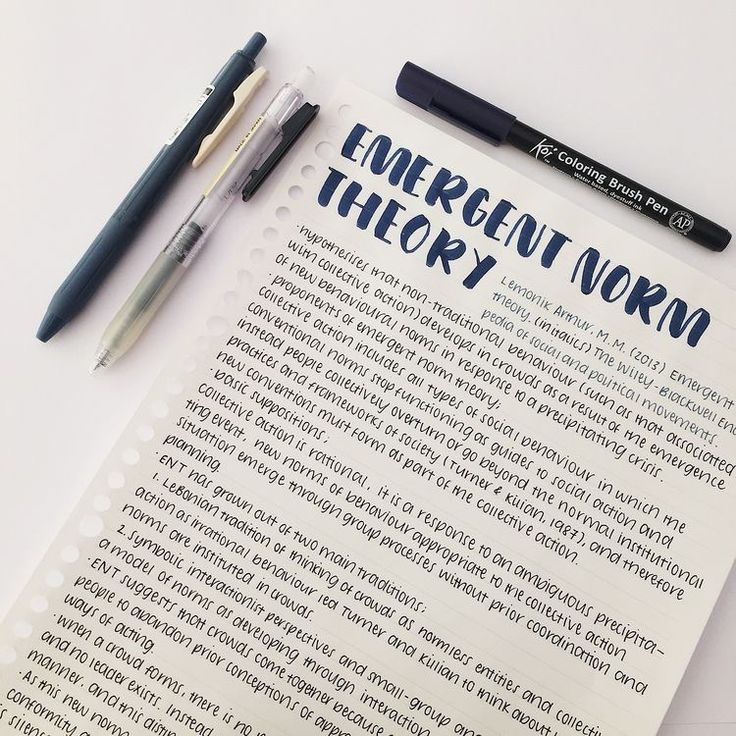 Koi Coloring Brush Pen
Water based, dyestuff ink
AP
EMERGENT NORM
THEORY
Lemonik Arthur, M. M. (2013) Emergent
theory. (initalics) The Wiley-Blackwell Enc
pedia of social and political movements.
· hypothesises that non-traditional behaviour (such as that associated
with collective action) develops in crowds as a result of the emergence
of new behavioural norms in response to a precipitating crisis.
· proponents of emergent norm theory;
collective action includes all types of social behaviour in which the
conventional norms stop functioning as guides to social action and
instead people collectively overturn or go beyond the normal institutional
practices and frameworks of society (Turner & Kilian, 1987), and therefore
new conventions must form as part of the collective action.
· basic suppositions;
collective action is rational, it is a response to an ambiguous precipita-
ting event, new norms of behaviour appropriate to the collective action
situation emerge through group processes without prior coordination and
planning.
· ENT has grown out of two main traditions;
1. LeBonian tradition of thinking of crowds as normless entities and collective
action as irrational behaviour led Turner and Kilian to think about
norms are instituted in crowds.
2. Symbolic interactionist perspectives and small-group and
a model of norms as developing through interaction
· ENT suggests that crowds come together because
people to abandon prior conceptions of appro
ways of acting.
· when a crowd forms, there is no
and no leader exists. Instead
manner, and this distin
· As this new norm
conformity
is silence